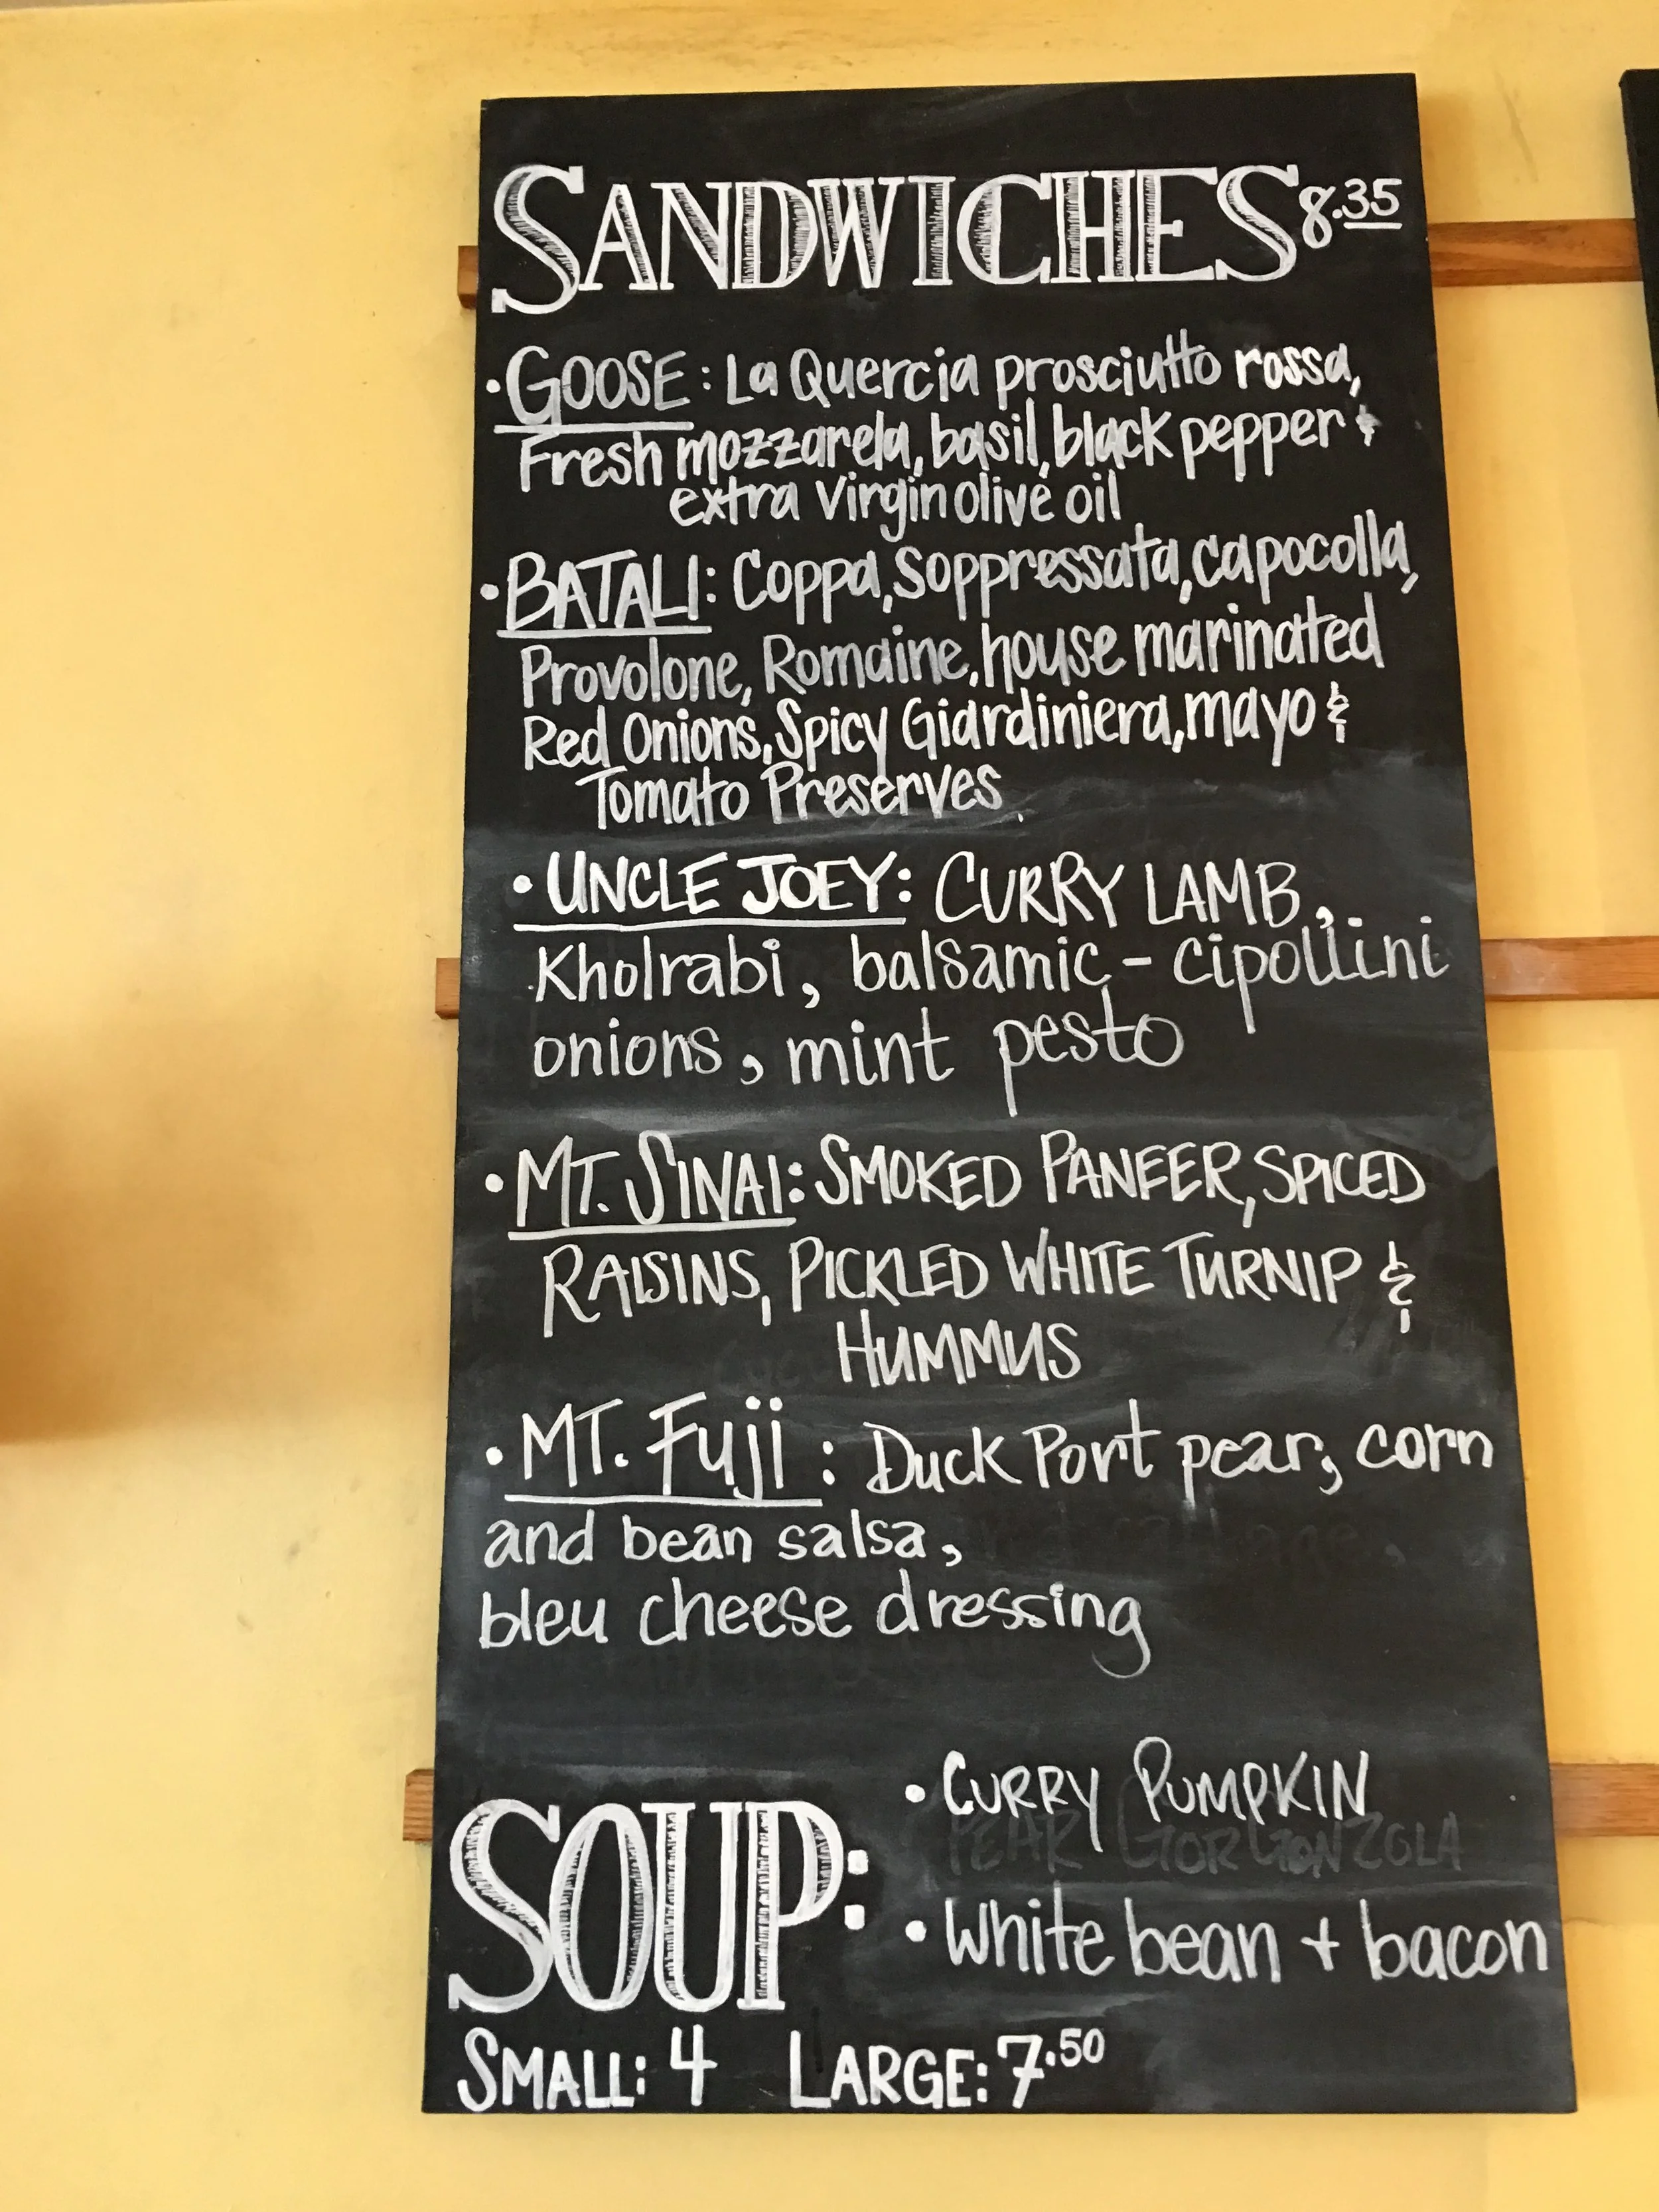 SANDWICHES 8.35
• GOOSE: La Quercia prosciutto rossa,
Fresh mozzarela, basil, black pepper &
extra virgin olive oil
• BATALI: Coppa, Soppressata, capocolla,
Provolone, Romaine, house marinated
Red Onions, Spicy Giardiniera, mayo &
Tomato Preserves
• UNCLE JOEY: CURRY LAMB,
Kholrabi, balsamic - cipollini
onions, mint pesto
• MT. SINAI: SMOKED PANEER, SPICED
RAISINS, PICKLED WHITE TURNIP &
HUMMUS
• MT. Fuji: Duck Port pear, corn
and bean salsa,
bleu cheese dressing
SOUP:
• CURRY PUMPKIN
PEAR GORGONZOLA
• White bean + bacon
SMALL: 4 LARGE: 7.50